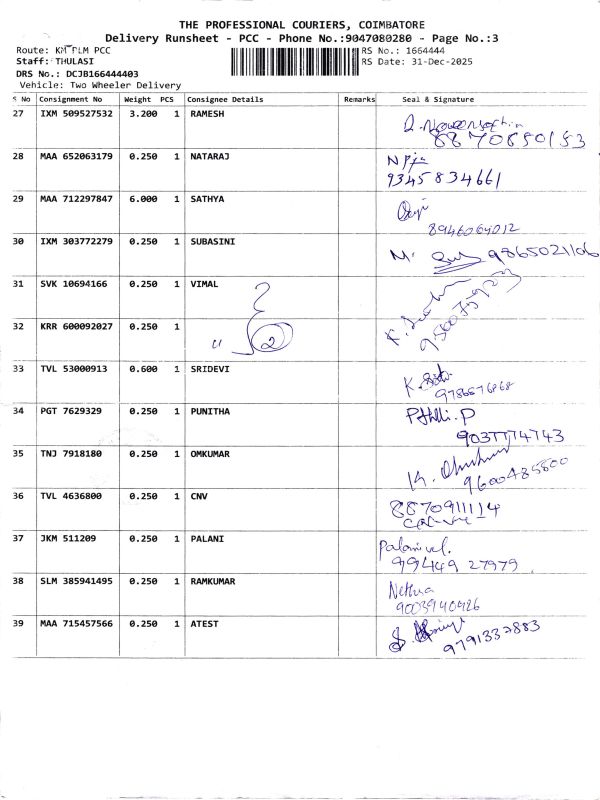 THE PROFESSIONAL COURIERS, COIMBATORE
Delivery Runsheet - PCC - Phone No.:9047080280 - Page No.:3
Route: KM PLM PCC
RS No.: 1664444
Staff: THULASI
RS Date: 31-Dec-2025
DRS No.: DCJB166444403
Vehicle: Two Wheeler Delivery
S No Consignment No Weight PCS Consignee Details Remarks Seal & Signature
27 IXM 509527532 3.200 1 RAMESH
28 MAA 652063179 0.250 1 NATARAJ
9345834661
29 MAA 712297847 6.000 1 SATHYA
8946064012
30 IXM 303772279 0.250 1 SUBASINI
9865021106
31 SVK 10694166 0.250 1 VIMAL
32 KRR 600092027 0.250 1
" 2
33 TVL 53000913 0.600 1 SRIDEVI
9786576868
34 PGT 7629329 0.250 1 PUNITHA
9037774743
35 TNJ 7918180 0.250 1 OMKUMAR
9600485800
36 TVL 4636800 0.250 1 CNV
8870911114
37 JKM 511209 0.250 1 PALANI
Palanivel.
99449 27979
38 SLM 385941495 0.250 1 RAMKUMAR
Nethra
9003940426
39 MAA 715457566 0.250 1 ATEST
9791337883